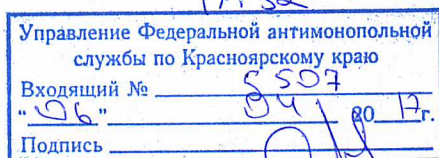 Управление Федеральной антимонопольной
службы по Красноярскому краю
Входящий № 5507
"06" 04 2017г.
Подпись